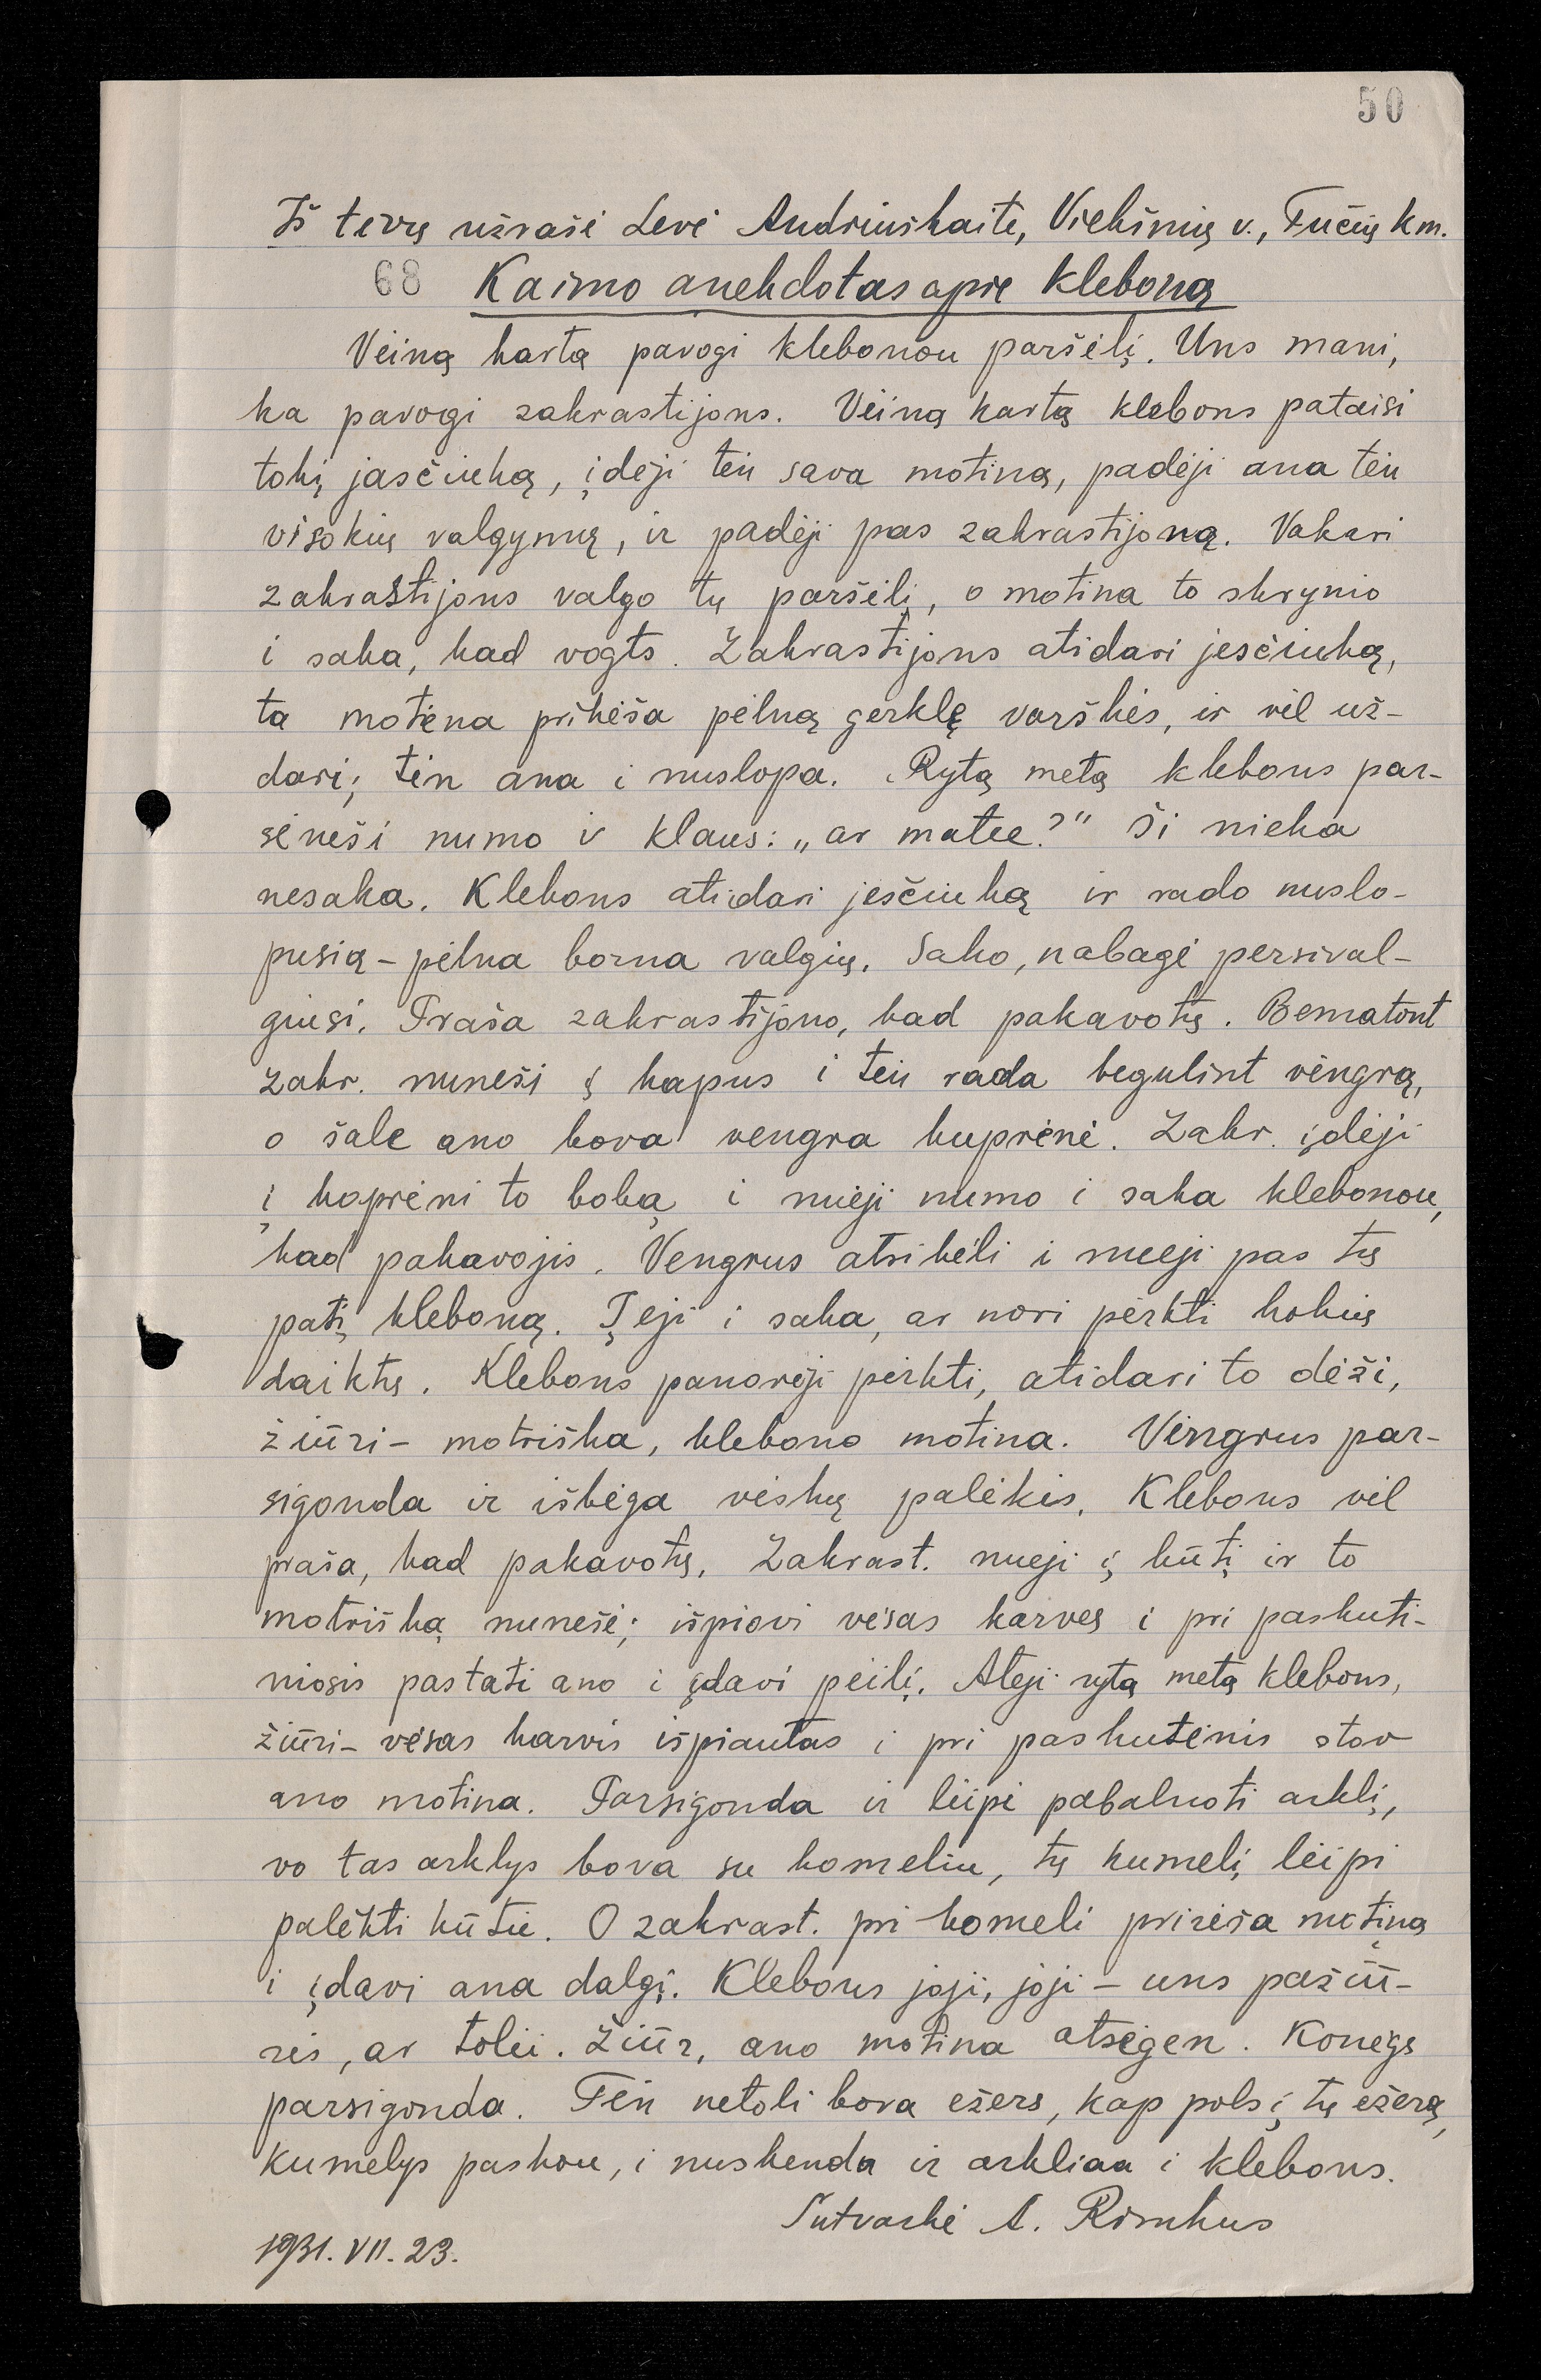 50
Iš tėvų užrašė Levė Andriuškaitė, Viekšnių v., Tučių km.
68 Kaimo anekdotas apie kleboną
Vėiną kartą pavogi klebonou paršėlį. Uns mani,
ka pavogi zakrastijons. Vėiną kartą klebons pataisi
tokį jasčiuką, įdėji tėn sava motiną, padėji ana tėn
visokių valgymų, ir padėji pas zakrastijoną. Vakari
zakrastijons valgo tų paršėlį, o motina to skrynio
i saka, kad vogts. Zakrastijons atidari jesčiuką,
ta motėna prikėša pėlną gerklę varškės, ir vėl už-
dari; tėn ana i nuslopa. Rytą metą klebons par-
sėneši numo ir klaus: „ar matee?" Ši nieka
nesaka. Klebons atidari ješčiuką ir rado nuslo-
pusią – pėlna borna valgių. Sako, nabagė persival-
giusi. Praša zakrastijono, kad pakavotų. Bematont
zakr. nuneši į kapus i tėn rada begulint vėngrą,
o šale ano bova vengra kuprėnė. Zakr. įdėji
į koprėni to bobą i nuėji numo i saka klebonou,
kad pakavojis. Vengrus atsikėli i nueji pas tų
patį kleboną. Įeji i saka, ar nori pėrkti kokių
daiktų. Klebons panorėji pėrkti, atidari to dėži,
žiūri – motriška, klebono motina. Vėngrus par-
sigonda ir išbėga vėskų palėkis. Klebons vėl
praša, kad pakavotų. Zakrast. nueji į kūtį ir to
motrišką nunešė; išpiovi vėsas karves i pri paskuti-
niosis pastati ano i įdavi peilį. Ateji rytą metą klebons,
žiūri – vėsas karvis išpiautas i pri paskutėnis stov
ano motina. Parsigonda ir lėipi pabalnoti arklį,
vo tas arklys bova su komeliu, tų kumelį lėipi
palėkti kūtie. O zakrast. pri komeli pririša motiną
i įdavi ana dalgį. Klebons joji, joji – uns pažiū-
ris, ar tolii. Žiūr, ano motina atsėgen. Konėgs
parsigonda. Tėn netoli bova ežers, kap pols į tų ežerą,
kumelys paskou, i nuskenda ir arkliaa i klebons.
Sutvarkė A. Rimkus
1931. VII. 23.